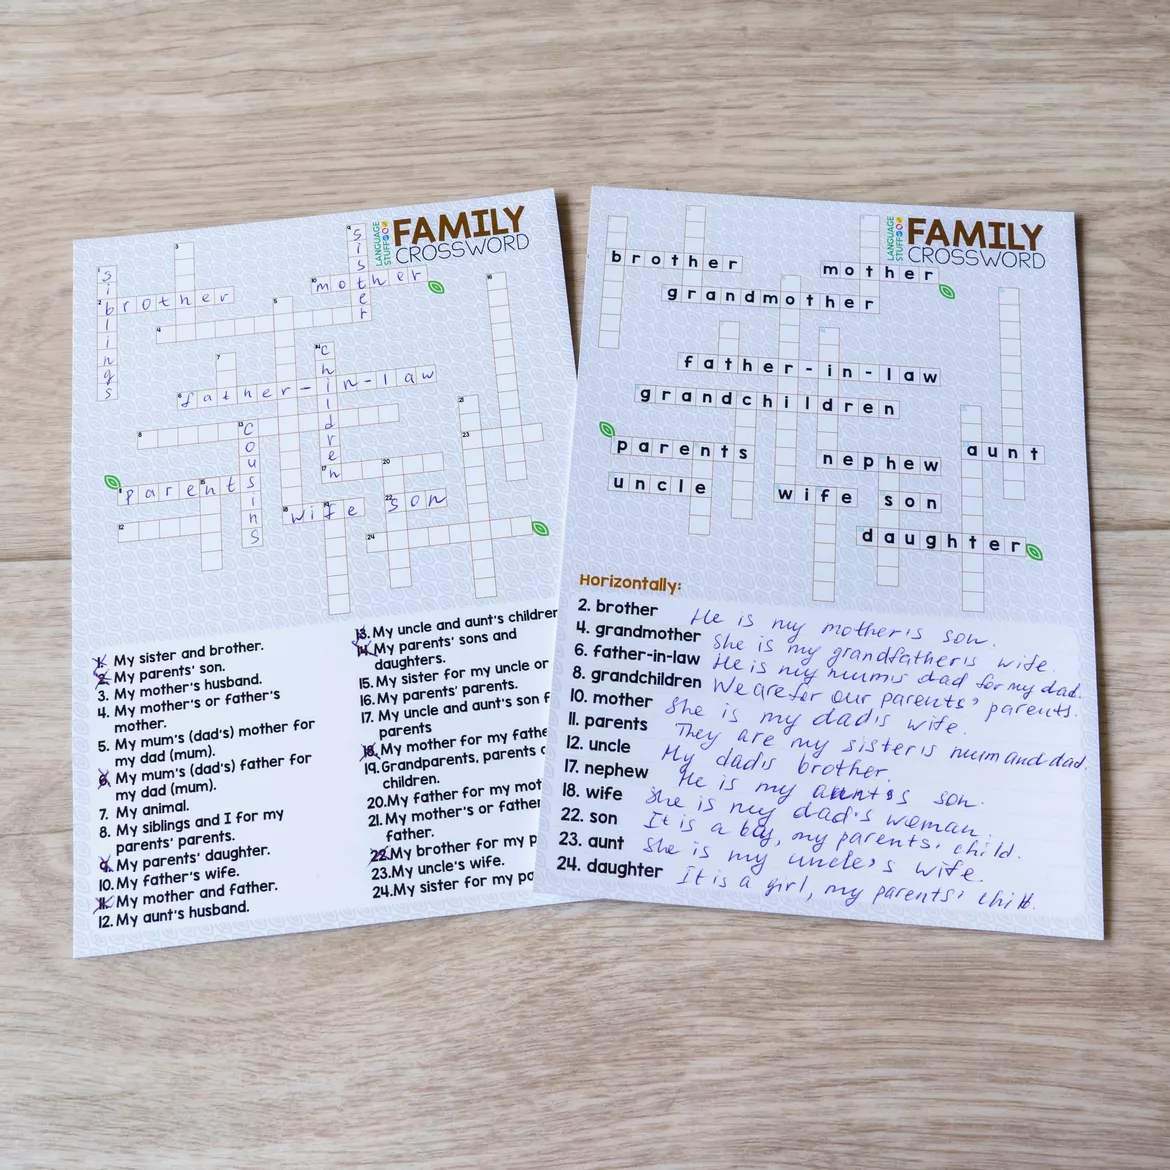 LANGUAGE
STUFF
FAMILY
CROSSWORD
siblings
brother
sister
mother
father-in-law
children
cousins
parents
wife
son
1. My sister and brother.
2. My parents' son.
3. My mother's husband.
4. My mother's or father's
mother.
5. My mum's (dad's) mother for
my dad (mum).
6. My mum's (dad's) father for
my dad (mum).
7. My animal.
8. My siblings and I for my
parents' parents.
9. My parents' daughter.
10. My father's wife.
11. My mother and father.
12. My aunt's husband.
13. My uncle and aunt's children
14. My parents' sons and
daughters.
15. My sister for my uncle or
16. My parents' parents.
17. My uncle and aunt's son f
parents
18. My mother for my fathe
19. Grandparents, parents
children.
20. My father for my mot
21. My mother's or father
father.
22. My brother for my p
23. My uncle's wife.
24. My sister for my pa
LANGUAGE
STUFF
FAMILY
CROSSWORD
brother
mother
grandmother
father-in-law
grandchildren
parents
aunt
nephew
uncle
wife
son
daughter
Horizontally:
2. brother He is my mother's son.
4. grandmother She is my grandfather's wife.
6. father-in-law He is my mum's dad for my dad.
8. grandchildren We are for our parents' parents.
10. mother She is my dad's wife.
11. parents They are my sister's mum and dad.
12. uncle My dad's brother.
17. nephew He is my aunt's son.
18. wife She is my dad's woman.
22. son It is a boy, my parents' child.
23. aunt She is my uncle's wife.
24. daughter It is a girl, my parents' child.